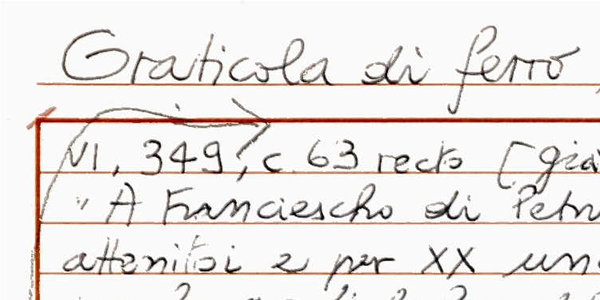 Graticola di ferro,
VI, 349, c. 63 recto [già
"A Franciescho di Petru
attenitoi e per XX unc